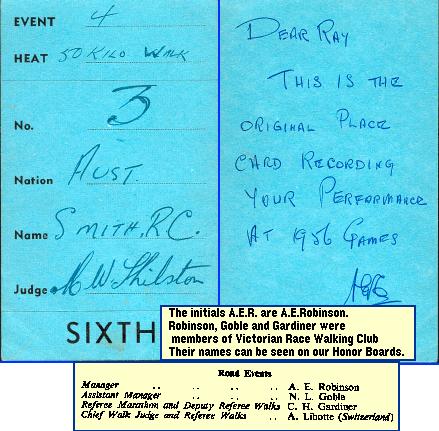 EVENT 4
HEAT 50 KILO WALK
No. 3
Nation AUST.
Name SMITH, R.C.
Judge W Shilston
SIXTH
DEAR RAY
THIS IS THE
ORIGINAL PLACE
CARD RECORDING
YOUR PERFORMANCE
AT 1956 GAMES
AER
The initials A.E.R. are A.E.Robinson.
Robinson, Goble and Gardiner were
members of Victorian Race Walking Club
Their names can be seen on our Honor Boards.
Road Events
Manager .. .. .. .. A. E. Robinson
Assistant Manager .. .. .. N. L. Goble
Referee Marathon and Deputy Referee Walks .. C. H. Gardiner
Chief Walk Judge and Referee Walks .. .. A. Libotte (Switzerland)